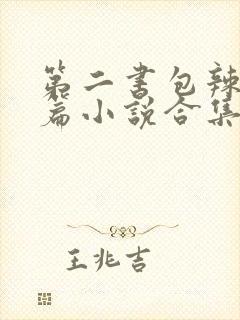 第二书包辣
篇小说合集
王兆吉